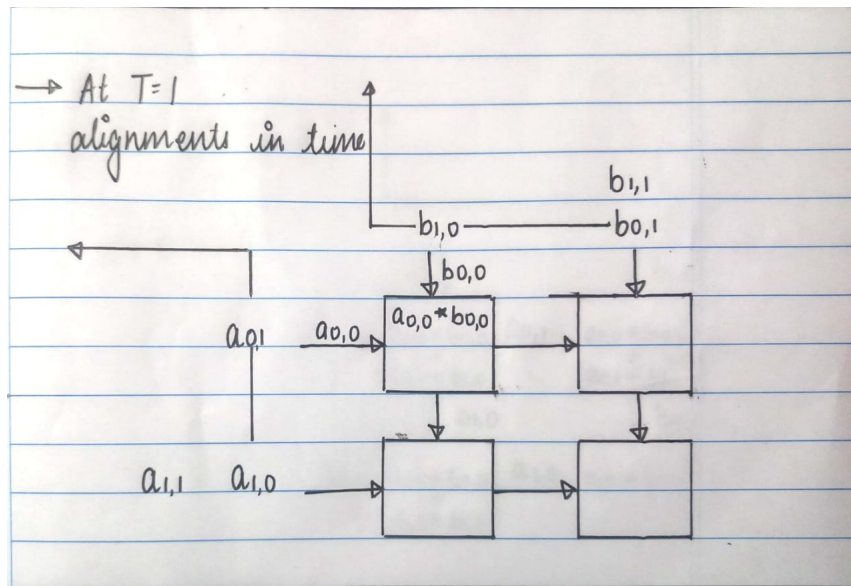 → At T=1
alignments in time
b1,1
b1,0 b0,1
b0,0
a0,0*b0,0
a0,1 a0,0
a1,1 a1,0